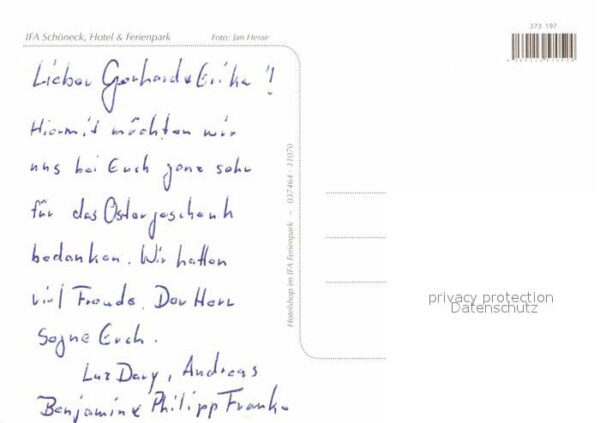 IFA Schöneck, Hotel & Ferienpark
Foto: Jan Hesse
373 197
Lieber Gerhard & Erika!
Hiermit möchten wir
uns bei Euch ganz sehr
für das Ostergeschenk
bedanken. Wir hatten
viel Freude. Der Herr
Segne Euch.
Dary, Andreas
Benjamin & Philipp Franke
Hotelshop im IFA Ferienpark - 037464 - 31070
privacy protection
Datenschutz